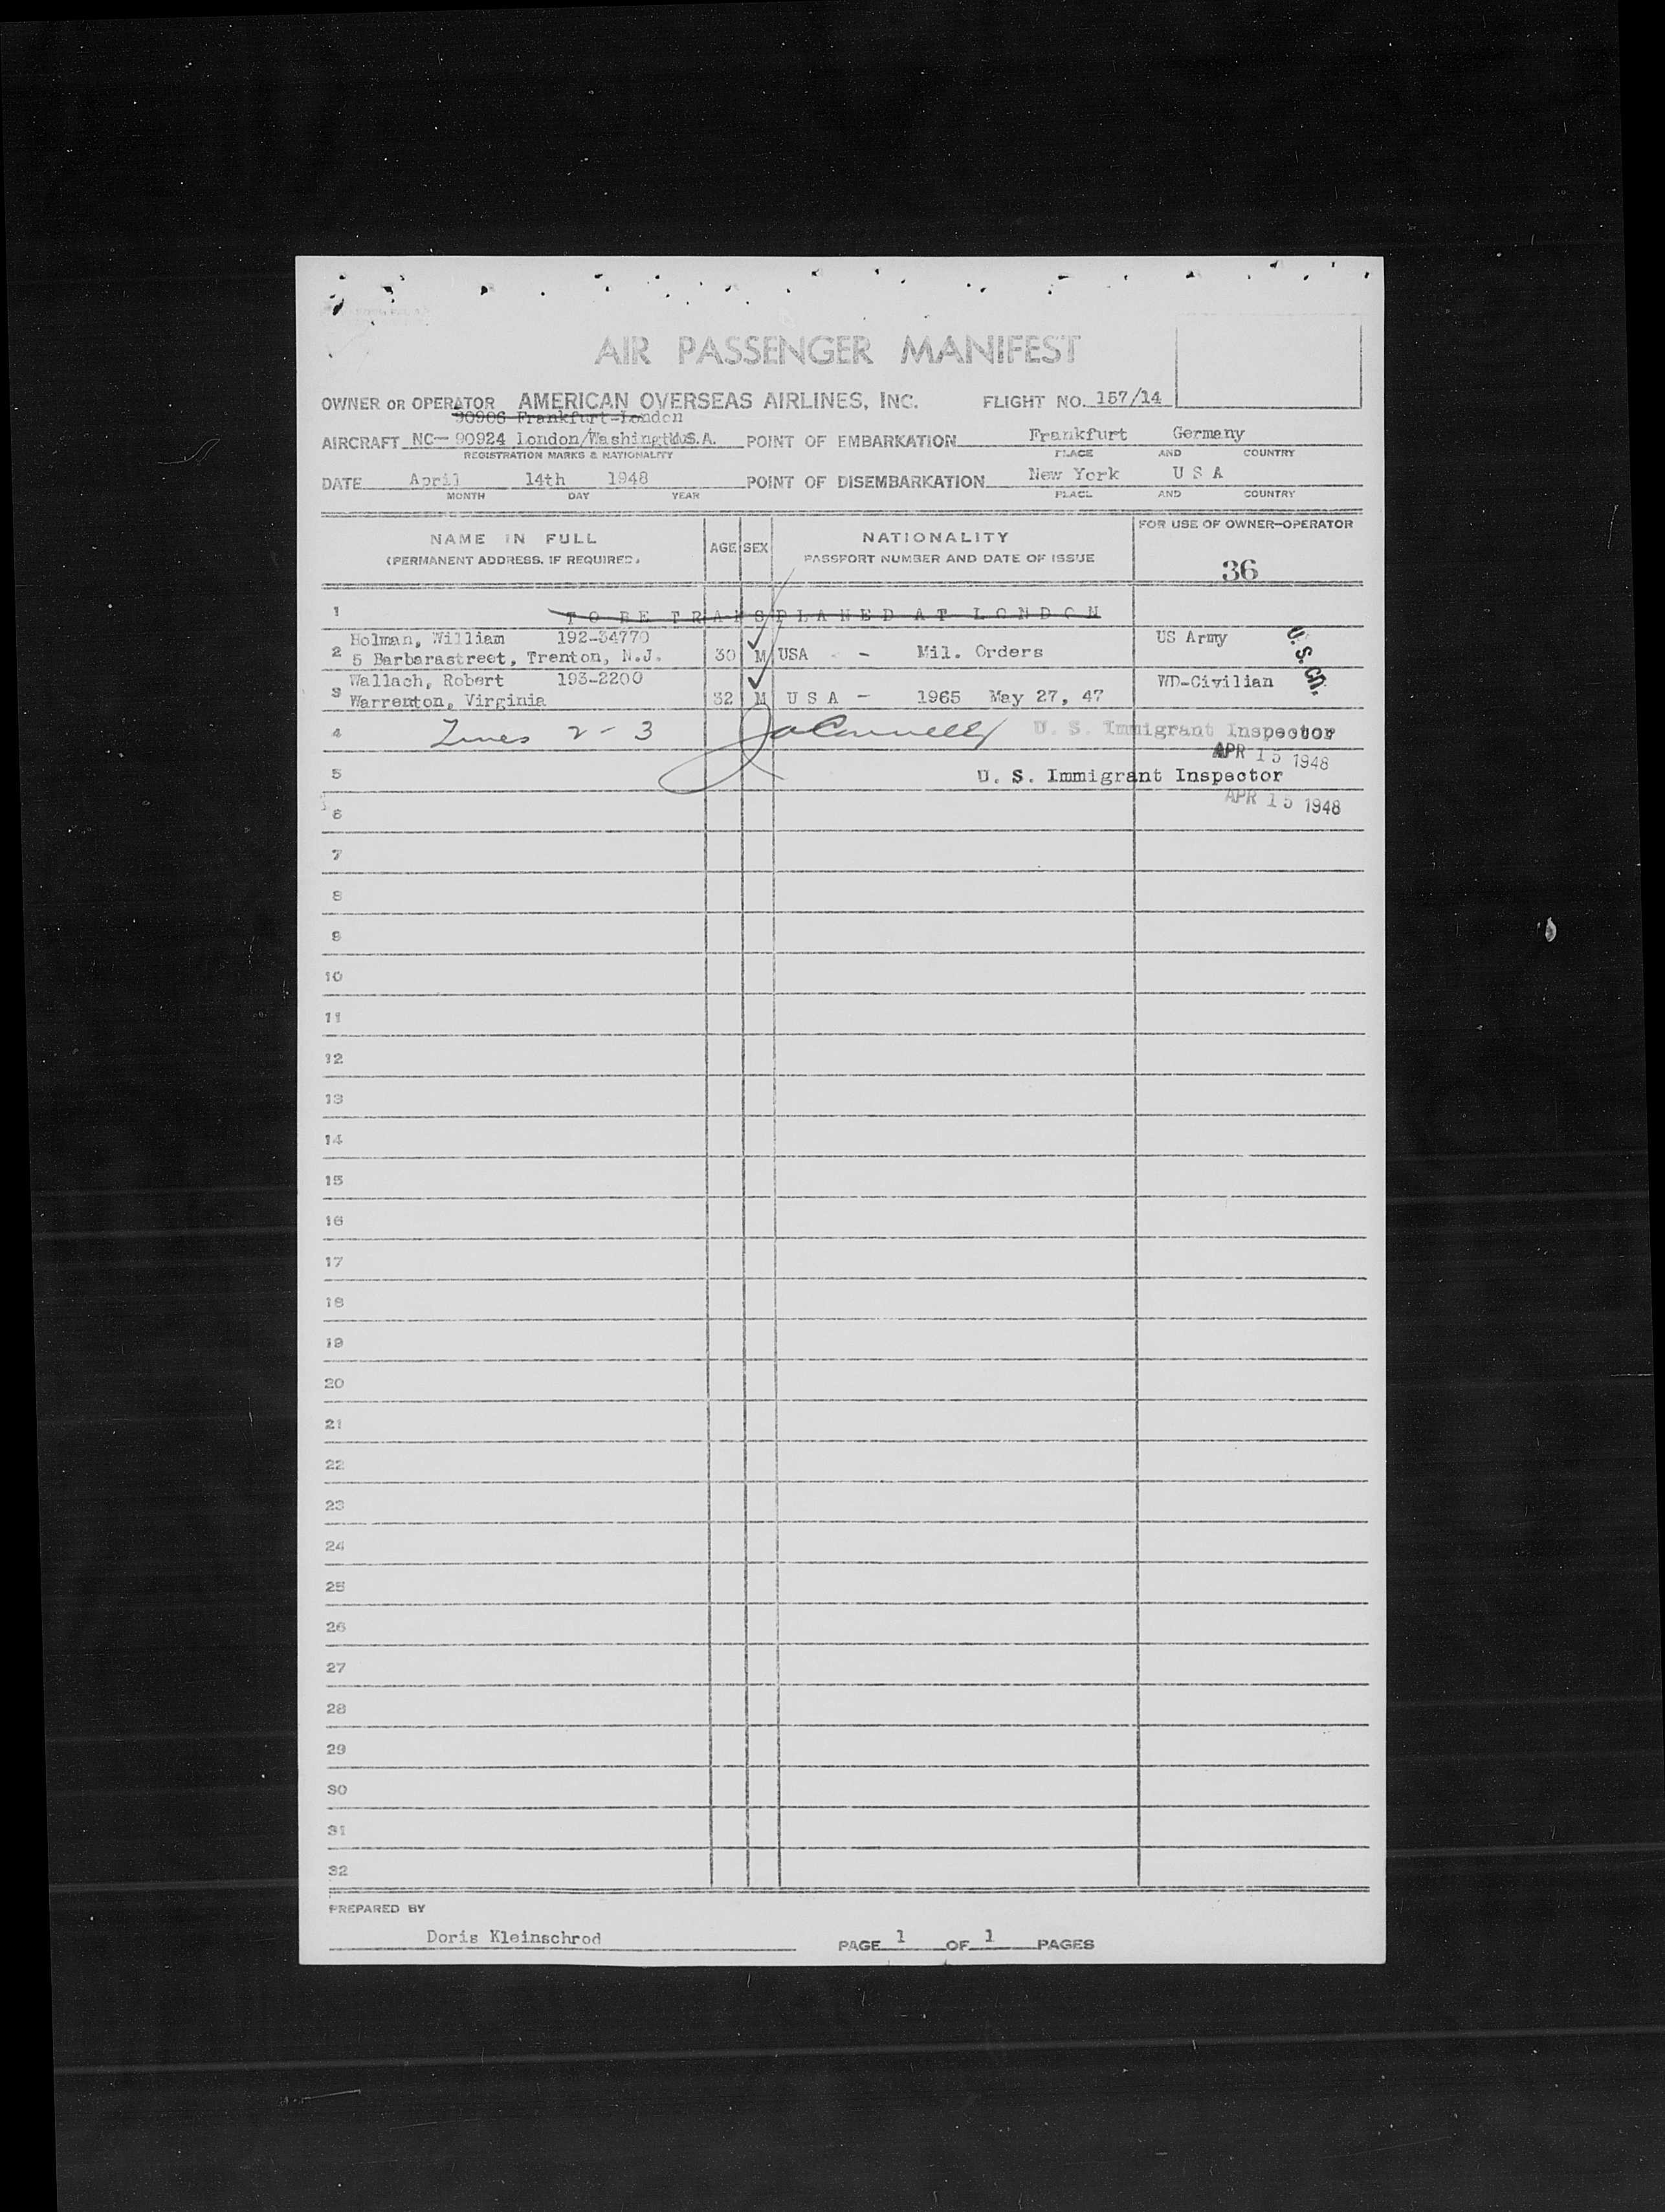 AIR PASSENGER MANIFEST
OWNER OR OPERATOR AMERICAN OVERSEAS AIRLINES, INC. FLIGHT NO. 157/14
90906 Frankfurt-London
AIRCRAFT NC- 90924 London/Washington U.S.A. POINT OF EMBARKATION Frankfurt Germany
REGISTRATION MARKS & NATIONALITY PLACE AND COUNTRY
DATE April 14th 1948 POINT OF DISEMBARKATION New York U S A
MONTH DAY YEAR PLACE AND COUNTRY
NAME IN FULL AGE SEX NATIONALITY FOR USE OF OWNER-OPERATOR
(PERMANENT ADDRESS, IF REQUIRED) PASSPORT NUMBER AND DATE OF ISSUE
36
1 T O B E T R A N S P L A N E D A T L O N D O N
Holman, William 192-34770 US Army
2 5 Barbarastreet, Trenton, N.J. 30 M USA - - Mil. Orders
U.S. Cit.
Wallach, Robert 193-2200 WD-Civilian
3 Warrenton, Virginia 32 M U S A - 1965 May 27, 47
4 Lines 2 - 3 U. S. Immigrant Inspector
APR 15 1948
5 U. S. Immigrant Inspector
APR 15 1948
6
7
8
9
10
11
12
13
14
15
16
17
18
19
20
21
22
23
24
25
26
27
28
29
30
31
32
PREPARED BY
Doris Kleinschrod PAGE 1 OF 1 PAGES